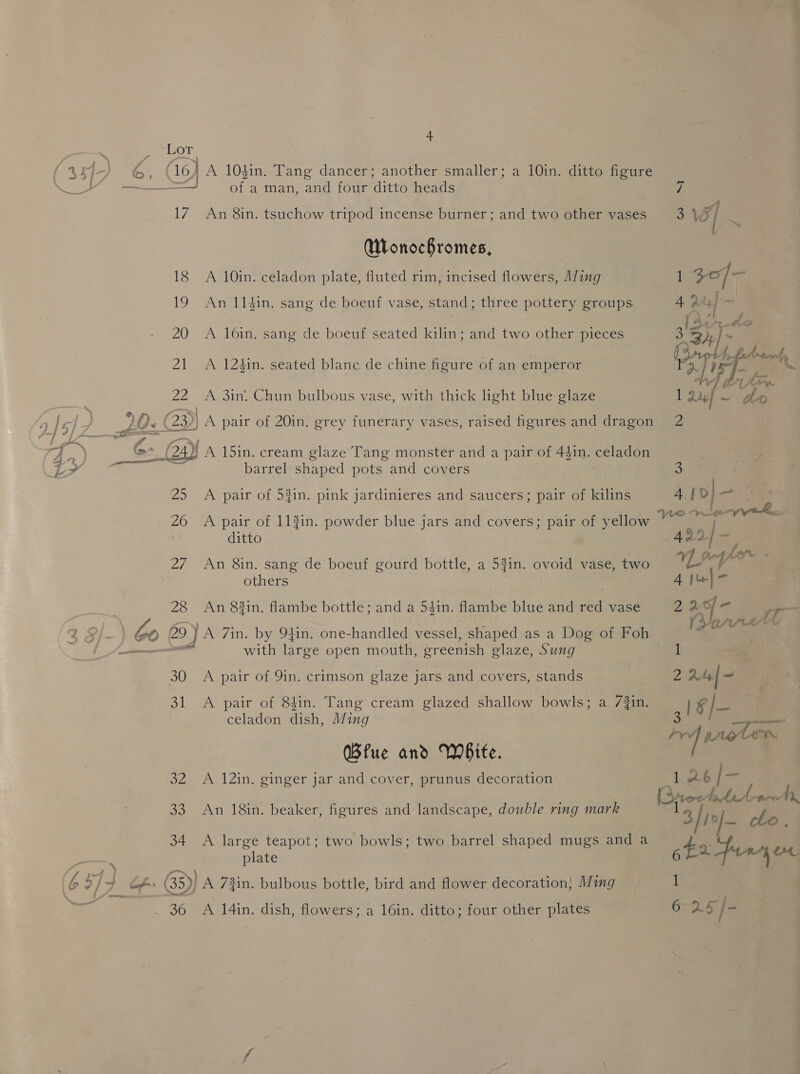 4
Lot
35/- 6. (16) A 10½in. Tang dancer; another smaller; a 10in. ditto figure
of a man, and four ditto heads 7
17 An 8in. tsuchow tripod incense burner; and two other vases 3 15/
Monochromes,
18 A 10in. celadon plate, fluted rim, incised flowers, Ming 1 30/-
19 An 11½in. sang de boeuf vase, stand; three pottery groups 4 24/-
20 A 16in. sang de boeuf seated kilin; and two other pieces 3
21 A 12½in. seated blanc de chine figure of an emperor
22 A 3in. Chun bulbous vase, with thick light blue glaze 1 24/- do
20. (23) A pair of 20in. grey funerary vases, raised figures and dragon 2
6. (24) A 15in. cream glaze Tang monster and a pair of 4½in. celadon
barrel shaped pots and covers 3
25 A pair of 5¾in. pink jardinieres and saucers; pair of kilins 4 10/-
26 A pair of 11¾in. powder blue jars and covers; pair of yellow
ditto 4 22/-
27 An 8in. sang de boeuf gourd bottle, a 5¾in. ovoid vase, two
others 4
28 An 8¾in. flambe bottle; and a 5½in. flambe blue and red vase 2
60 (29) A 7in. by 9½in. one-handled vessel, shaped as a Dog of Foh
with large open mouth, greenish glaze, Sung 1
30 A pair of 9in. crimson glaze jars and covers, stands 2 24/-
31 A pair of 8½in. Tang cream glazed shallow bowls; a 7¾in.
celadon dish, Ming 3 18/-
Blue and White.
32 A 12in. ginger jar and cover, prunus decoration 1 26/-
33 An 18in. beaker, figures and landscape, double ring mark 3 /10/- do.
34 A large teapot; two bowls; two barrel shaped mugs and a
plate 6
(35) A 7¾in. bulbous bottle, bird and flower decoration, Ming 1
36 A 14in. dish, flowers; a 16in. ditto; four other plates 6 25/-